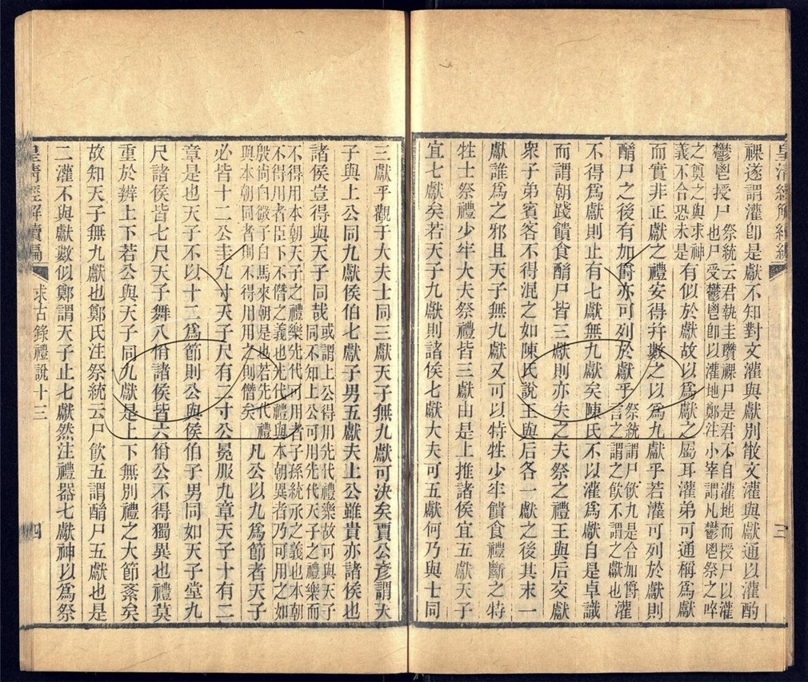 皇清經解續編
祼遂謂灌卽是獻不知對文灌與獻別散文灌與獻通以灌酌
鬱鬯授尸祭統云君執圭瓚祼尸是君不自灌地而授尸以灌
也尸受鬱鬯卽以灌地鄭注小宰謂凡鬱鬯祭之啐
之奠之與求神
義不合恐未是有似於獻故以爲獻之屬耳灌弟可通稱爲獻
而實非正獻之禮安得幷數之以爲九獻乎若灌可列於獻則
酳尸之後有加爵亦可列於獻乎祭統謂尸飲九是合加爵
言之謂之飲不謂之獻也灌
不得爲獻則止有七獻無九獻矣陳氏不以灌爲獻自是卓識
而謂朝踐饋食酳尸皆三獻則亦失之夫祭之禮王與后交獻
衆子弟賓客不得混之如陳氏說王與后各一獻之後其末一
獻誰爲之邪且天子無九獻又可以特牲少牢饋食禮斷之特
牲士祭禮少牢大夫祭禮皆三獻由是上推諸侯宜五獻天子
宜七獻矣若天子九獻則諸侯七獻大夫可五獻何乃與士同
三
三獻乎觀于大夫士同三獻天子無九獻可決矣賈公彥謂天
子與上公同九獻侯伯七獻子男五獻夫上公雖貴亦諸侯也
諸侯豈得與天子同哉或謂上公得用先代禮樂故可與天子
同不知上公可用先代天子之禮樂而
不得用本朝天子之禮樂先代可用者子孫統承之義也本朝
不得用者臣下不僭之義也先代禮與本朝異者乃可用之如
殷尙白微子白馬來朝是也若先代禮
與本朝同者則不得用用之則僭矣凡公以九爲節者天子
必皆十二公圭九寸天子尺有二寸公冕服九章天子十有二
章是也天子不以十二爲節則公與侯伯子男同如天子堂九
尺諸侯皆七尺天子舞八佾諸侯皆六佾公不得獨異也禮莫
重於辨上下若公與天子同九獻是上下無別禮之大節紊矣
故知天子無九獻也鄭氏注祭統云尸飲五謂酳尸五獻也是
二灌不與獻數似鄭謂天子止七獻然注禮器七獻神以爲祭
皇淸經解續編
求古錄禮說十三
四